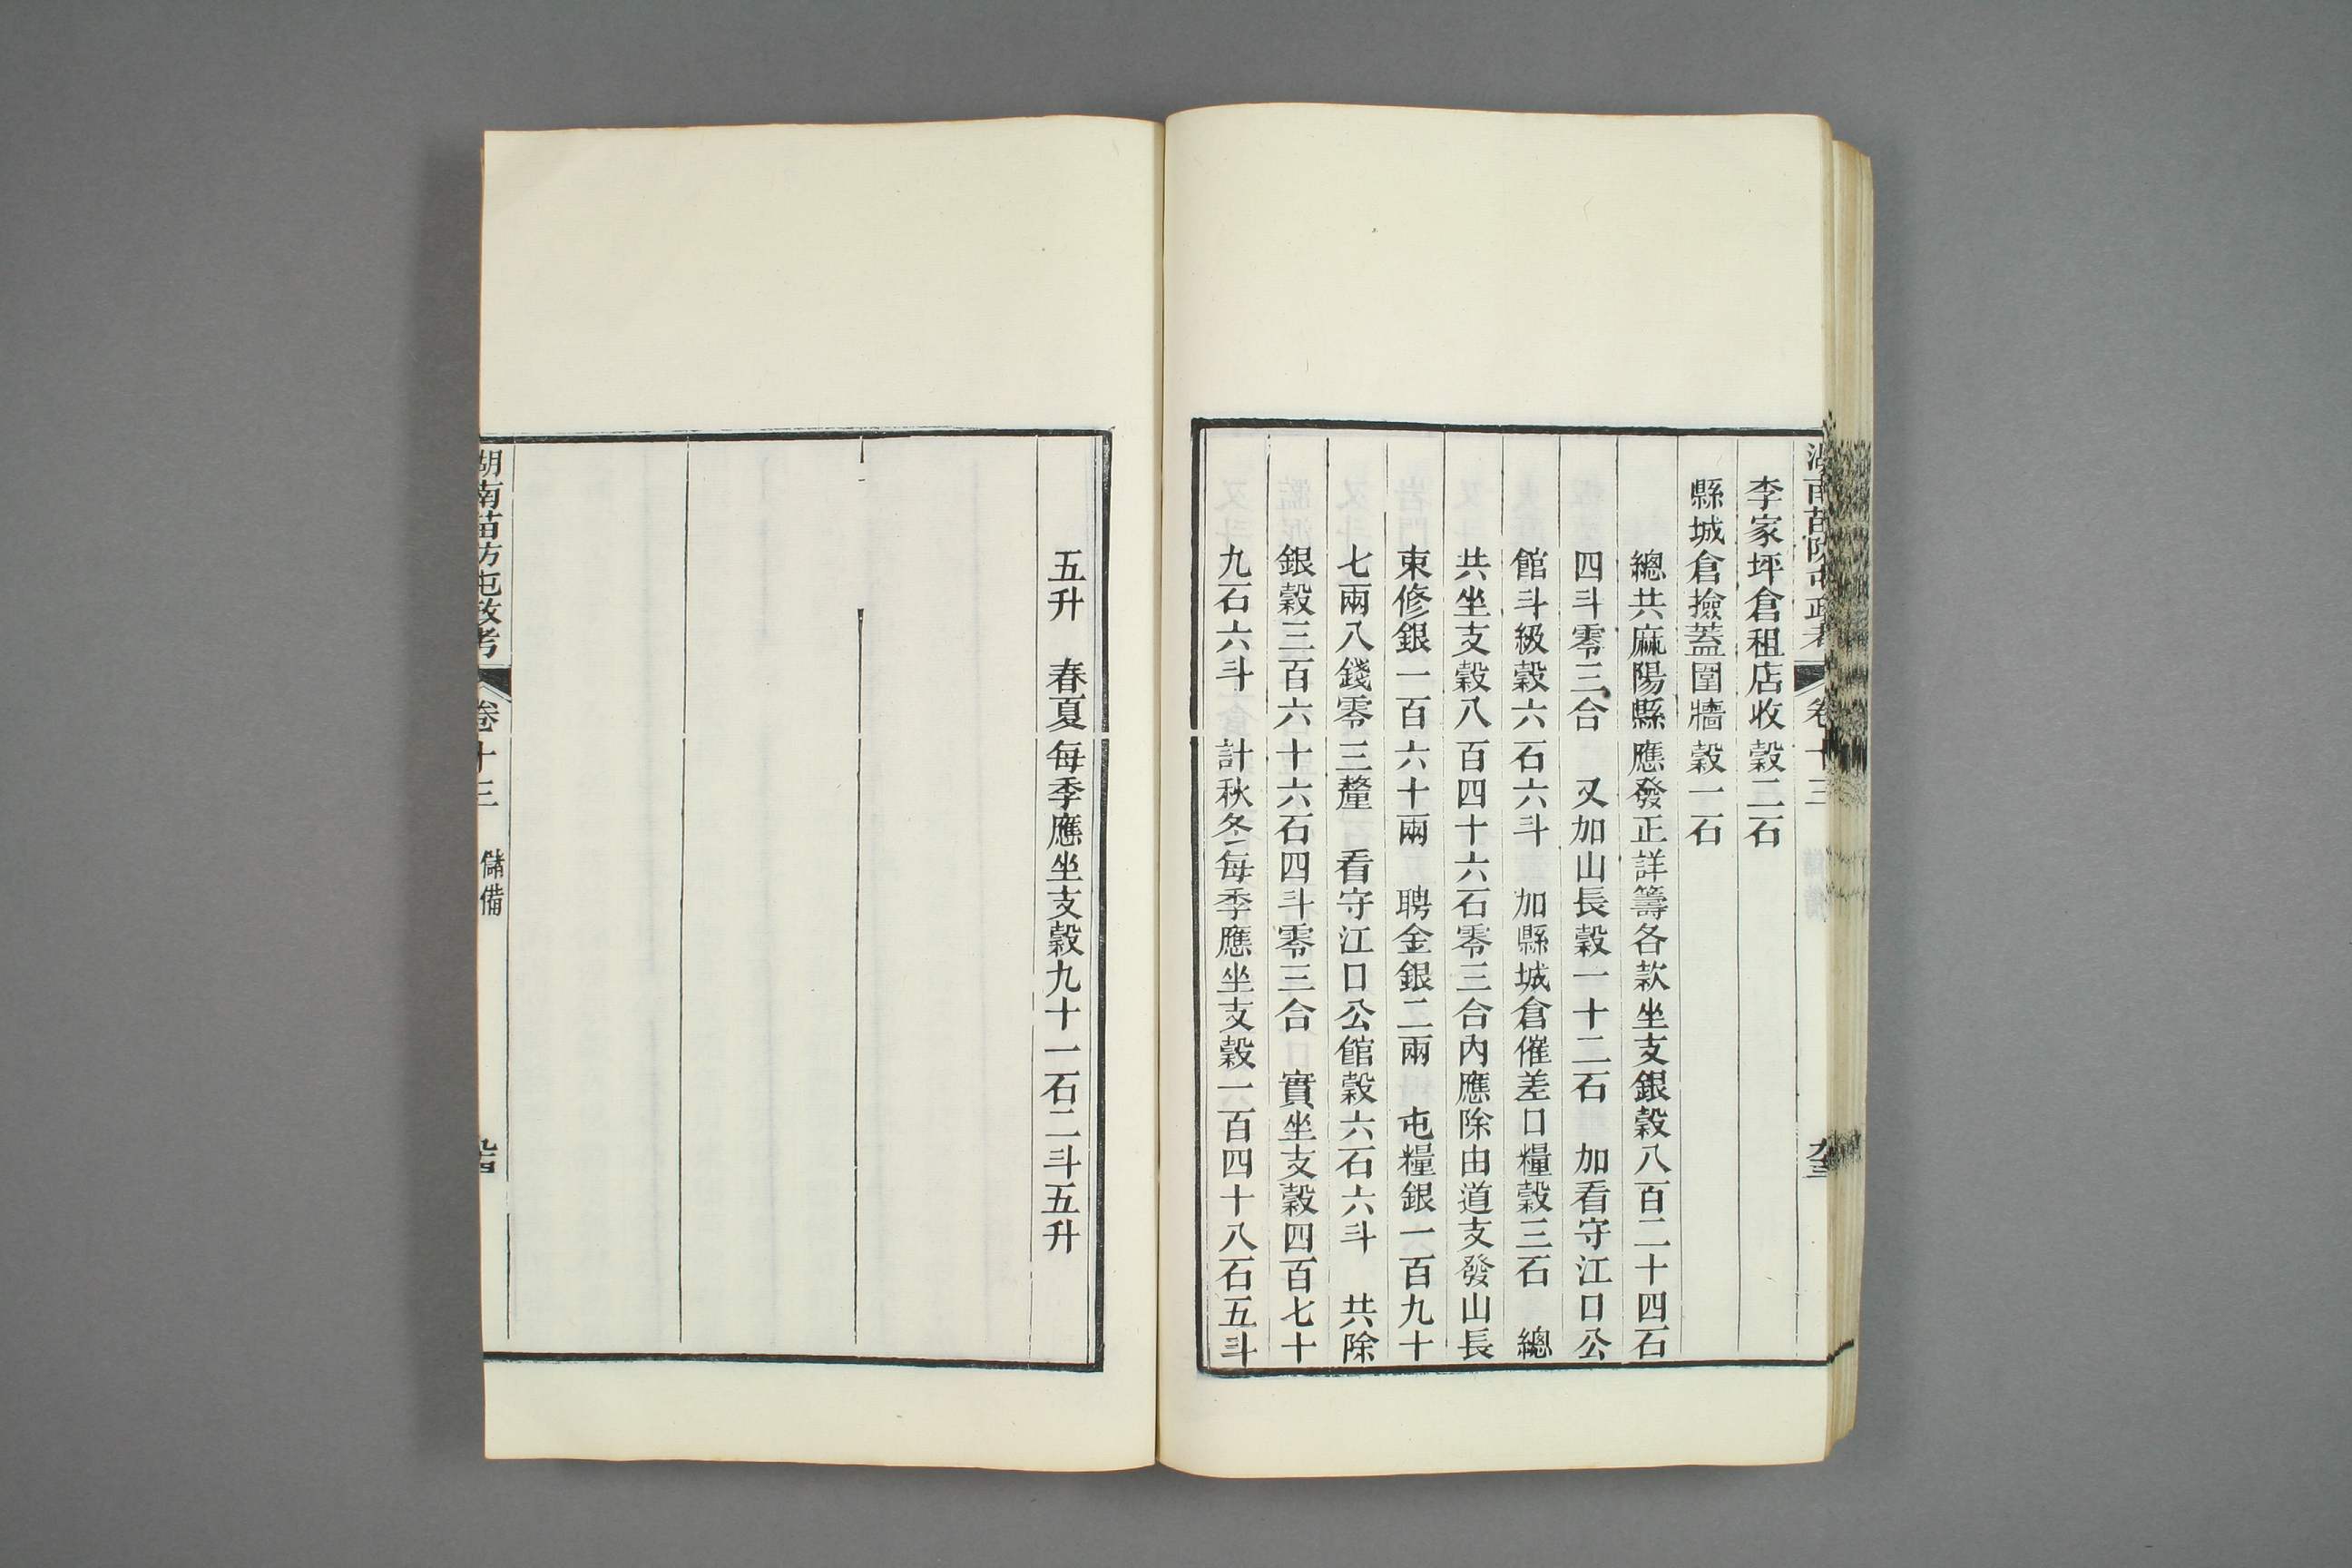 湖南苗防屯政考 卷十三 儲備
李家坪倉租店收穀二石
縣城倉撿蓋圍牆穀一石
總共麻陽縣應發正詳籌各款坐支銀穀八百二十四石
四斗零三合 又加山長穀一十二石 加看守江口公
館斗級穀六石六斗 加縣城倉催差口糧穀三石 總
共坐支穀八百四十六石零三合內應除由道支發山長
東修銀一百六十兩 聘金銀二兩 屯糧銀一百九十
七兩八錢零三釐 看守江口公館穀六石六斗 共除
銀穀三百六十六石四斗零三合 實坐支穀四百七十
九石六斗 計秋冬每季應坐支穀一百四十八石五斗
五升 春夏每季應坐支穀九十一石二斗五升
湖南苗防屯政考 卷十三 儲備 九十四